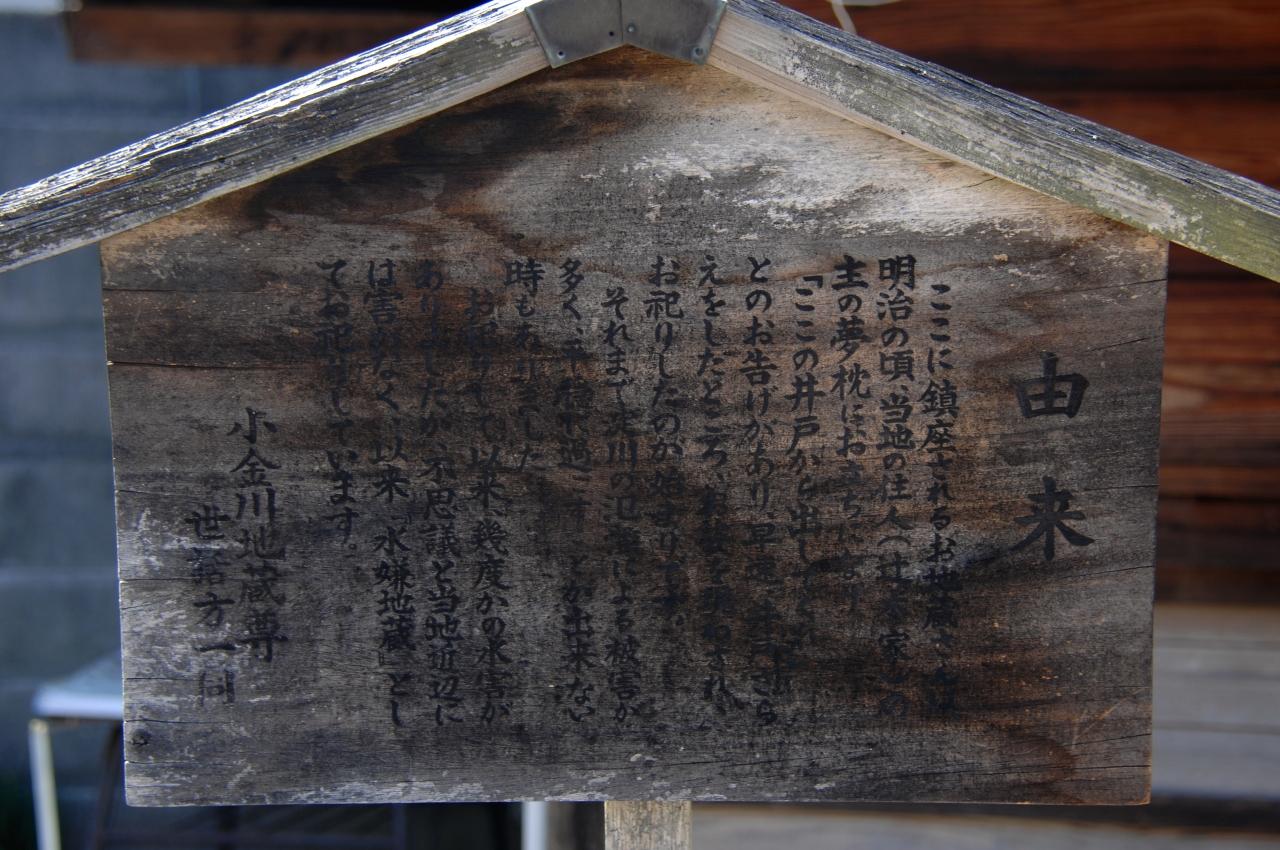 由来
ここに鎮座されるお地蔵さんは
明治の頃、当地の住人(辻本家)の
主の夢枕にお立ちになり
「ここの井戸から出してくれ」
とのお告げがあり、早速、井戸さら
えをしたところ、お姿を現わされ、
お祀りしたのが始まりです。
それまで 川の氾濫による被害が
多く、平穏に過ごすことが出来ない
時もありました
お祀りして以来、幾度かの水害が
ありましたが、不思議と当地近辺に
は害がなく、以来「水嫌地蔵」とし
てお祀りしています。
小金川地蔵尊
世話方一同